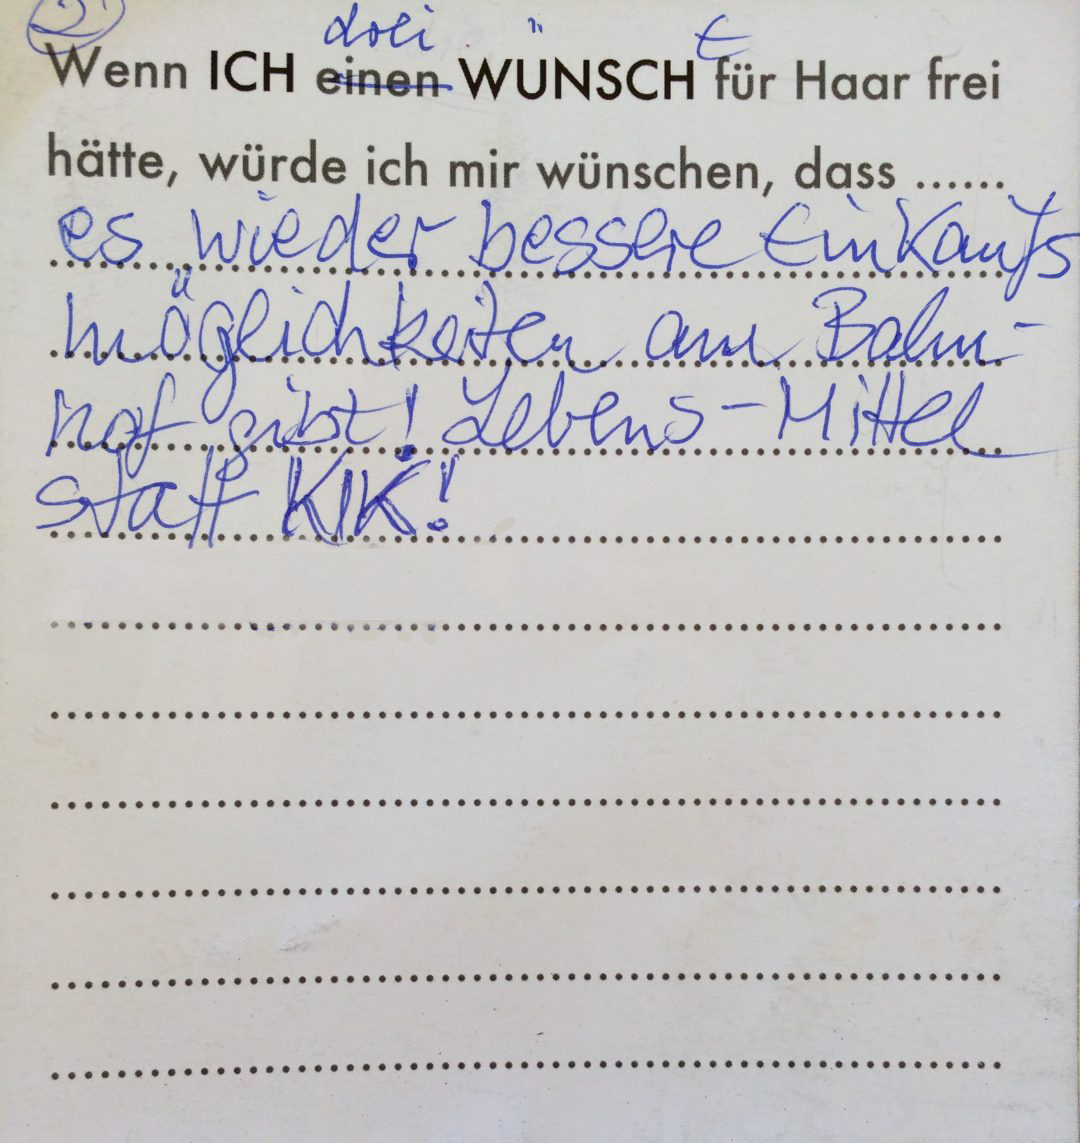 2.)
drei " E
Wenn ICH einen WUNSCH für Haar frei
hätte, würde ich mir wünschen, dass ......
es wieder bessere Einkaufs
möglichkeiten am Bahn-
hof gibt! Lebens-Mittel
statt KIK!